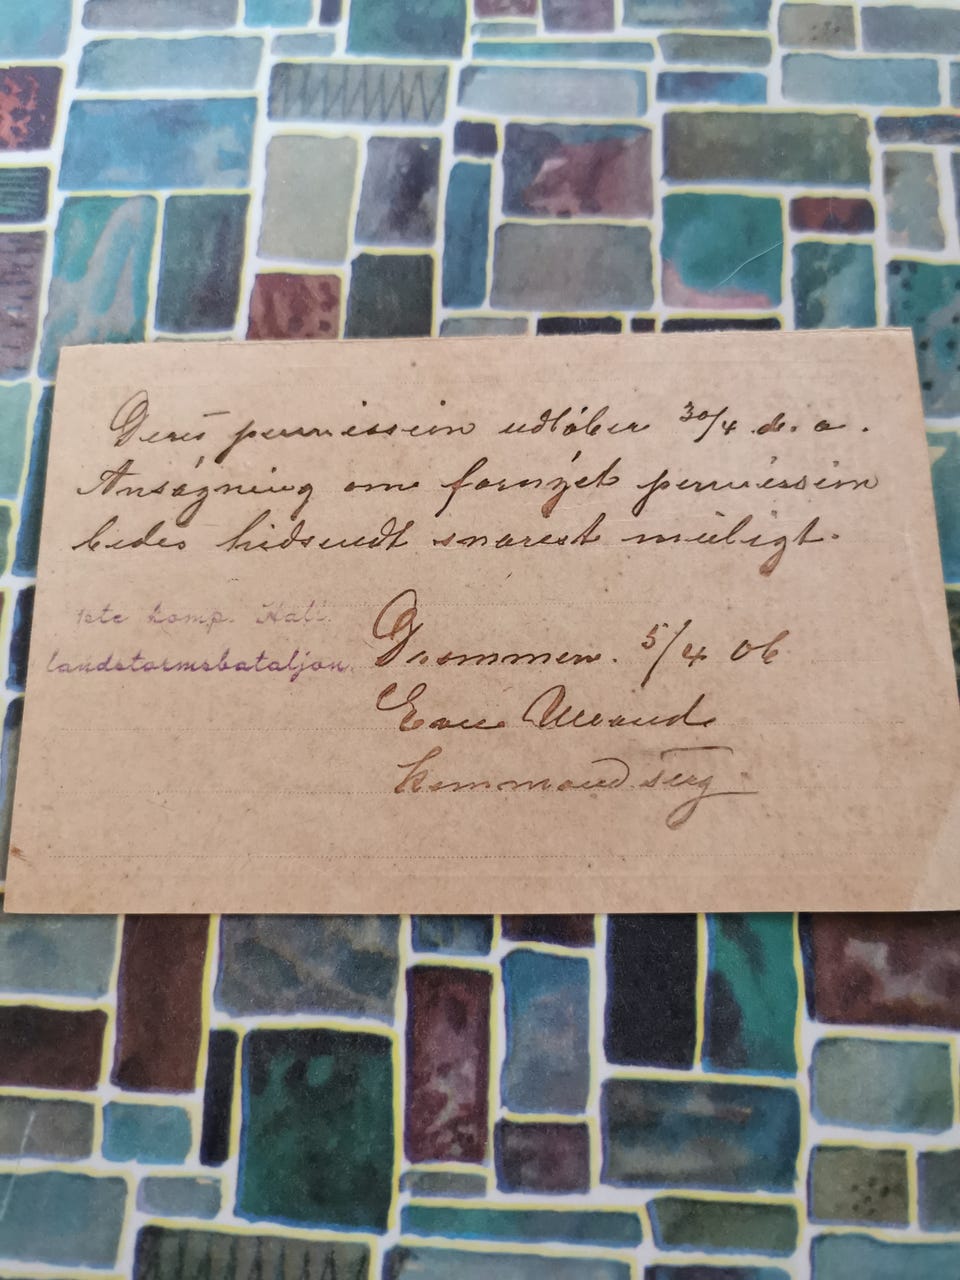 Deres permission udløber 30/4 d. a.
Ansøgning om fornyet permission
bedes hidsendt snarest muligt.
1ste komp. Hall.
landstormsbataljon.
Drammen. 5/4 06
kommand serg